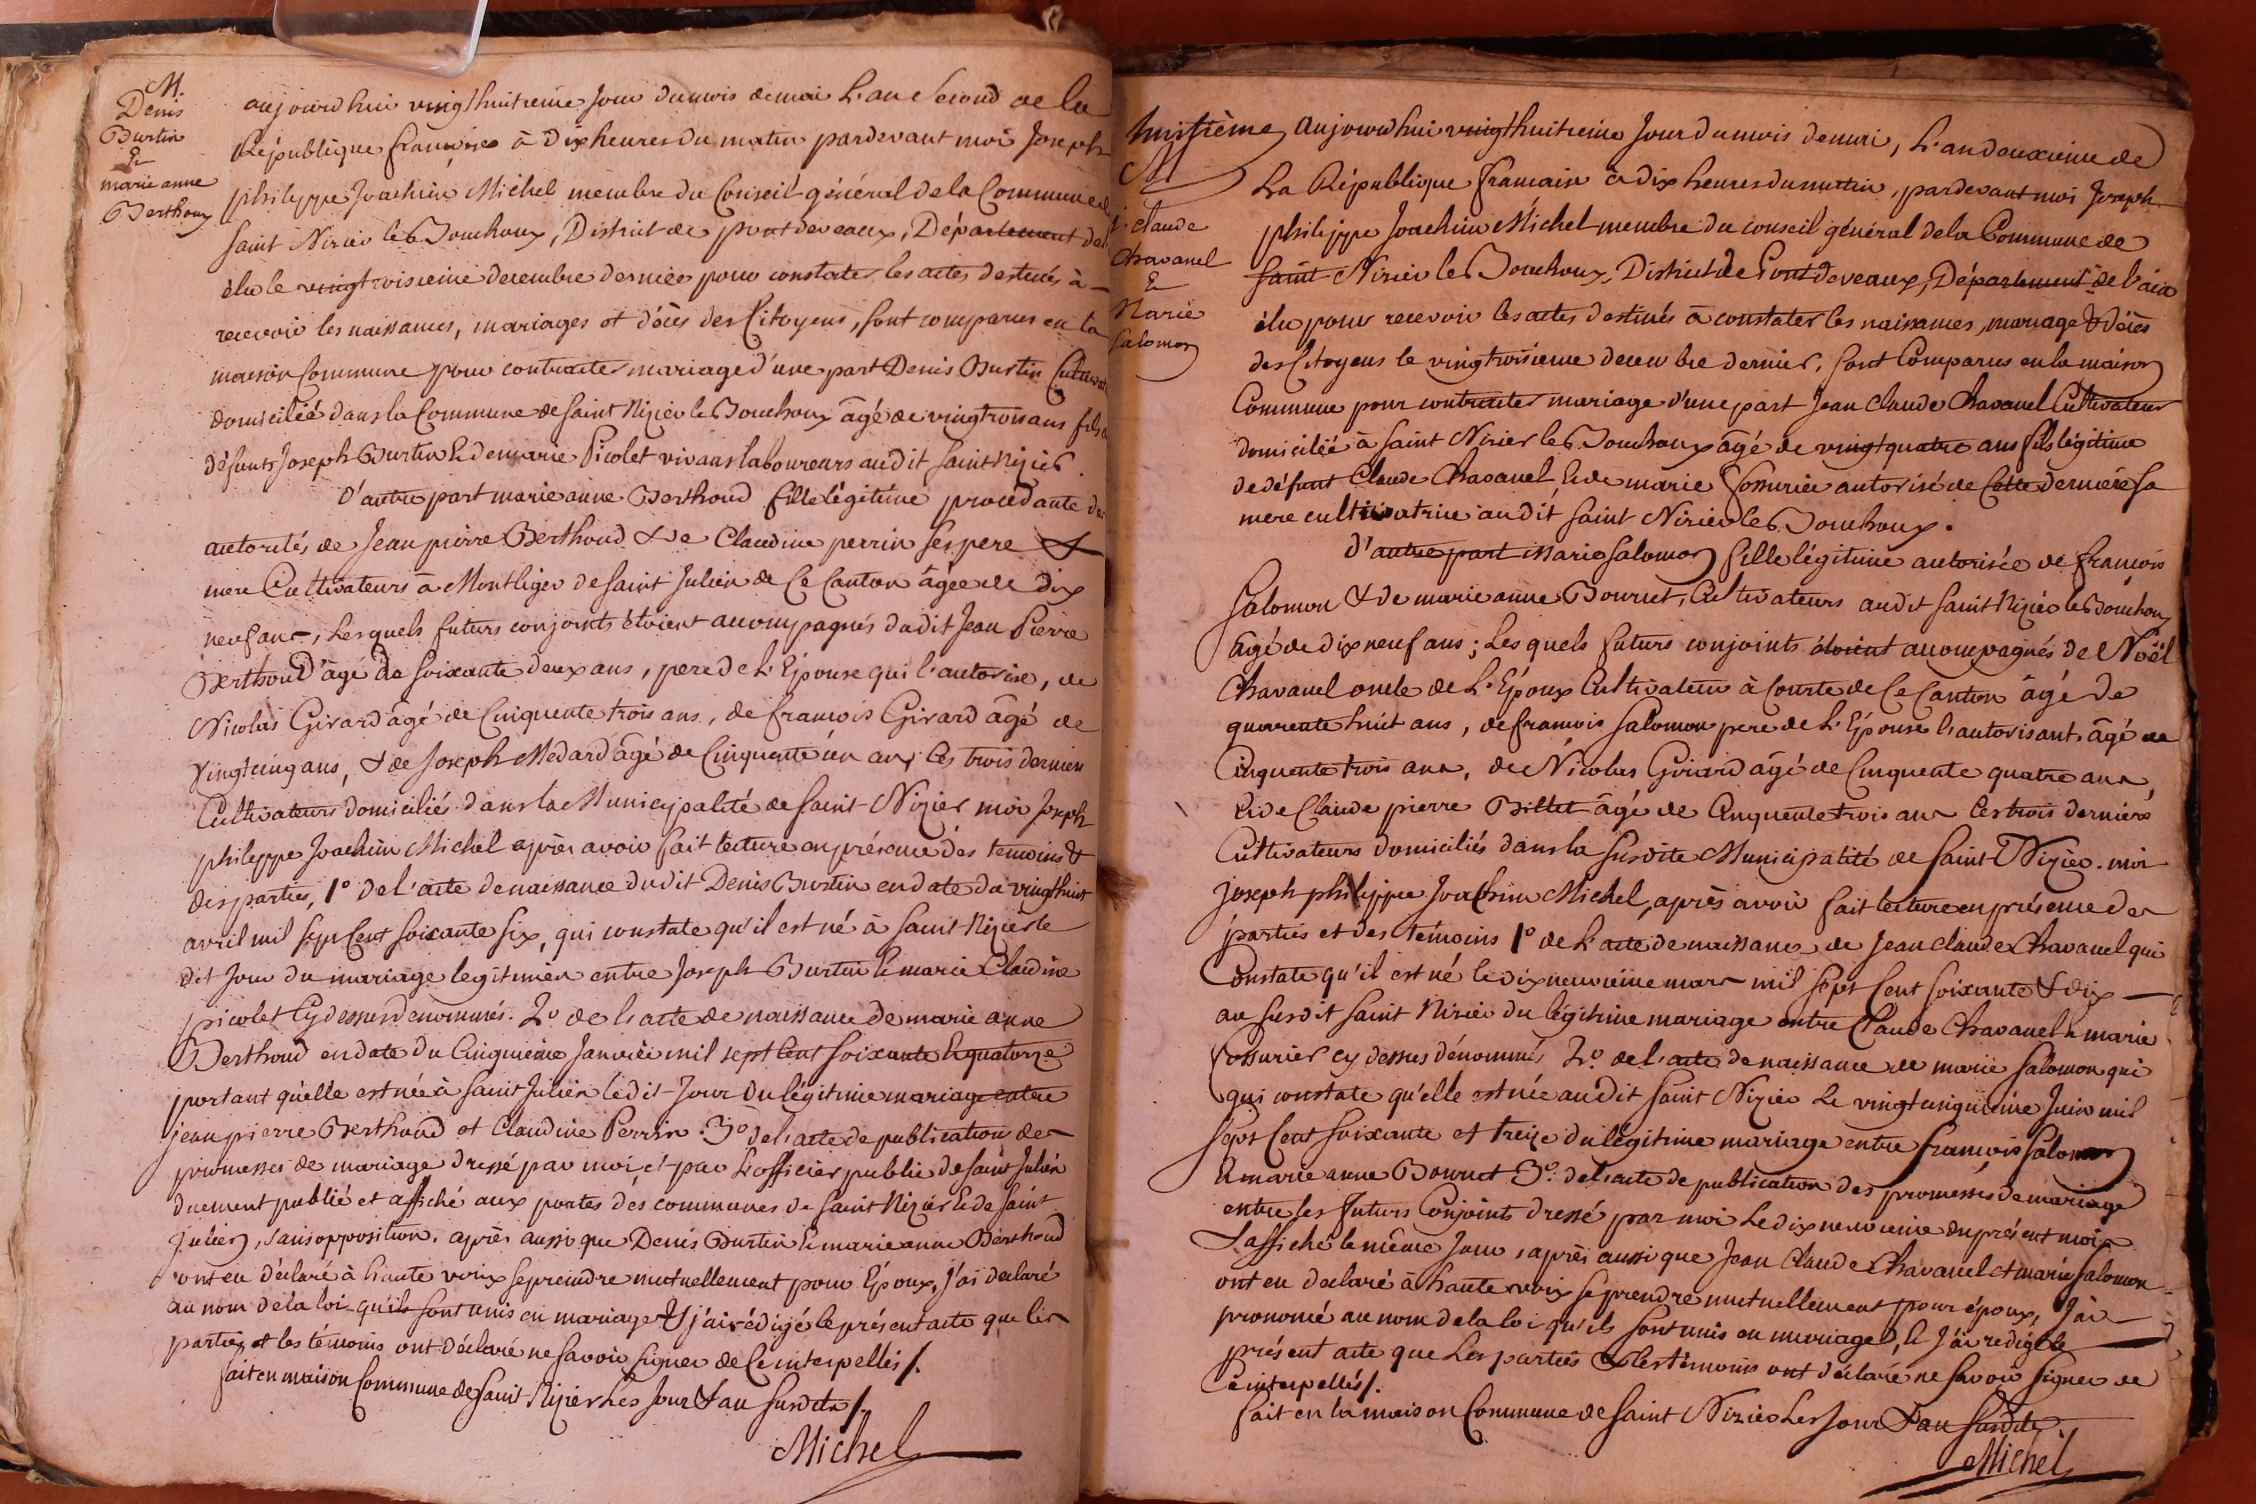 M.
Denis
Burtin
&
marie anne
Berthoux
aujourd'hui vingt huitieme jour du mois de mai L'an Second de la
République françoise à dix heures du matin pardevant moi Joseph
philippe Joachim Michel membre du Conseil général de la Commune de
saint Nizier le Bouchoux, District de pont devaux, Département de
élu le vingtroisieme decembre dernier pour constater les actes destinés à
recevoir les naissances, mariages et décès des Citoyens, sont comparus en la
maison Commune pour contracter mariage d'une part Denis Burtin
domicilié dans la Commune de Saint Nizier le Bouchoux âgé de vingt trois ans fils
défunts Joseph Burtin & de marie Picolet vivans laboureurs audit saint nizier
D'autre part marie anne Berthoud fille légitime procédante
autorités de Jean pierre Berthoud & de Claudine perrin ses pere &
mere Cultivateurs à Montliger de saint Julien de Ce Canton âgée de dix
neuf ans, Lesquels futurs conjoints étoient accompagnés dudit Jean Pierre
Berthoud âgé de soixante deux ans, pere de L'Epouse qui l'autorise, de
Nicolas Girard âgé de Cinquante trois ans, de françois Girard âgé de
vingt cinq ans, & de Joseph Medard âgé de Cinquante un ans, Les trois derniers
Cultivateurs domiciliés dans la Municipalité de Saint Nizier moi Joseph
philippe Joachim Michel après avoir fait lecture en présence des temoins &
des parties, 1° de l'acte de naissance dudit Denis Burtin en date du vingt huit
avril mil sept Cent soixante six, qui constate qu'il est né à Saint Nizier le
dit jour du mariage legitimer entre Joseph Burtin & marie Claudine
picolet Cydessus dénommés. 2° de l'acte de naissance de marie anne
Berthoud en date du Cinquieme Janvier mil sept Cent soixante & quatorze
portant qu'elle est née à Saint Julien le dit Jour du légitime mariage entre
jean pierre Berthoud et Claudine Perrin. 3° de l'acte de publication des
promesses de mariage dressé par moi, et par L'officier public de saint Julien
duement publié et affiché aux portes des communes de saint Nizier & de saint
julien, sans opposition. après aussi que Denis Burtin & marie anne Berthoud
ont eu déclaré à haute voix se prendre mutuellement pour Epoux, j'ai déclaré
au nom de la loi qu'ils sont unis en mariage & j'ai rédigé le présent acte que les
parties et les témoins ont déclaré ne savoir signer de Ce interpellés /.
fait en maison Commune de Saint Nizier Les Jour & an susdits /.
Michel
huitième
M
j. claude
Chavanel
&
Marie
Salomon
Aujourd'hui vingt huitieme Jour du mois de mai, L'an deuxieme de
La République française à dix heures du matin, pardevant moi Joseph
philippe Joachim Michel membre du conseil général de la Commune de
Saint Nizier le Bouchoux, District de Pont devaux, Département de l'ain
élu pour recevoir les actes destinés à constater les naissances, mariage & décès
des Citoyens le vingtroisieme decembre dernier, sont Comparus en la maison
Commune pour contracter mariage d'une part Jean Claude Chavanel Cultivateur
domicilié à saint Nizier le Bouchoux âgé de vingt quatre ans fils légitime
de défunt Claude Chavanel, & de marie fossurier autorisé de Cette derniere sa
mere cultivatrice audit saint Nizier le Bouchoux.
d'autre part Marie Salomon fille légitime autorisée de françois
Salomon & de marie anne Bourret, Cultivateurs audit saint Nizier le Bouchoux
âgé de dix neuf ans; Lesquels futurs conjoints étoient accompagnés de Noël
Chavanel oncle de L'Epoux Cultivateur à Courte de Ce Canton âgé de
quarente huit ans, de françois Salomon pere de L'Epouse l'autorisant, âgé de
Cinquente trois ans, de Nicolas Girard âgé de Cinquente quatre ans,
& de Claude pierre Billet âgé de Cinquente trois ans Les trois derniers
Cultivateurs domiciliés dans la susdite Municipalité de Saint Nizier. moi
joseph philippe Joachim Michel, après avoir fait lecture en présence des
parties et des témoins 1° de L'acte de naissance de Jean claude Chavanel qui
Constate qu'il est né le dix neuvieme mars mil sept Cent soixante & dix
au susdit saint Nizier du légitime mariage entre Claude Chavanel & marie
fossurier cy dessus dénommés, 2°. de l'acte de naissance de marie Salomon qui
qui constate qu'elle est née audit saint Nizier Le vingt cinquieme Juin mil
sept Cent soixante et treize du légitime mariage entre françois Salomon
& marie anne Bourret 3°. de l'acte de publication des promesses de mariage
entre les futurs Conjoints dressé par moi Le dix neuvieme du présent mois
& affiché le même Jour, après aussi que Jean Claude Chavanel et marie Salomon
ont eu déclaré à haute voix se prendre mutuellement pour époux, J'ai
prononcé au nom de la loi qu'ils sont unis en mariage, & J'ai redigé le
présent acte que Les parties & les témoins ont déclaré ne savoir signer de
Ce interpellés /.
fait en la maison Commune de saint Nizier Les Jour & an susdits.
Michel